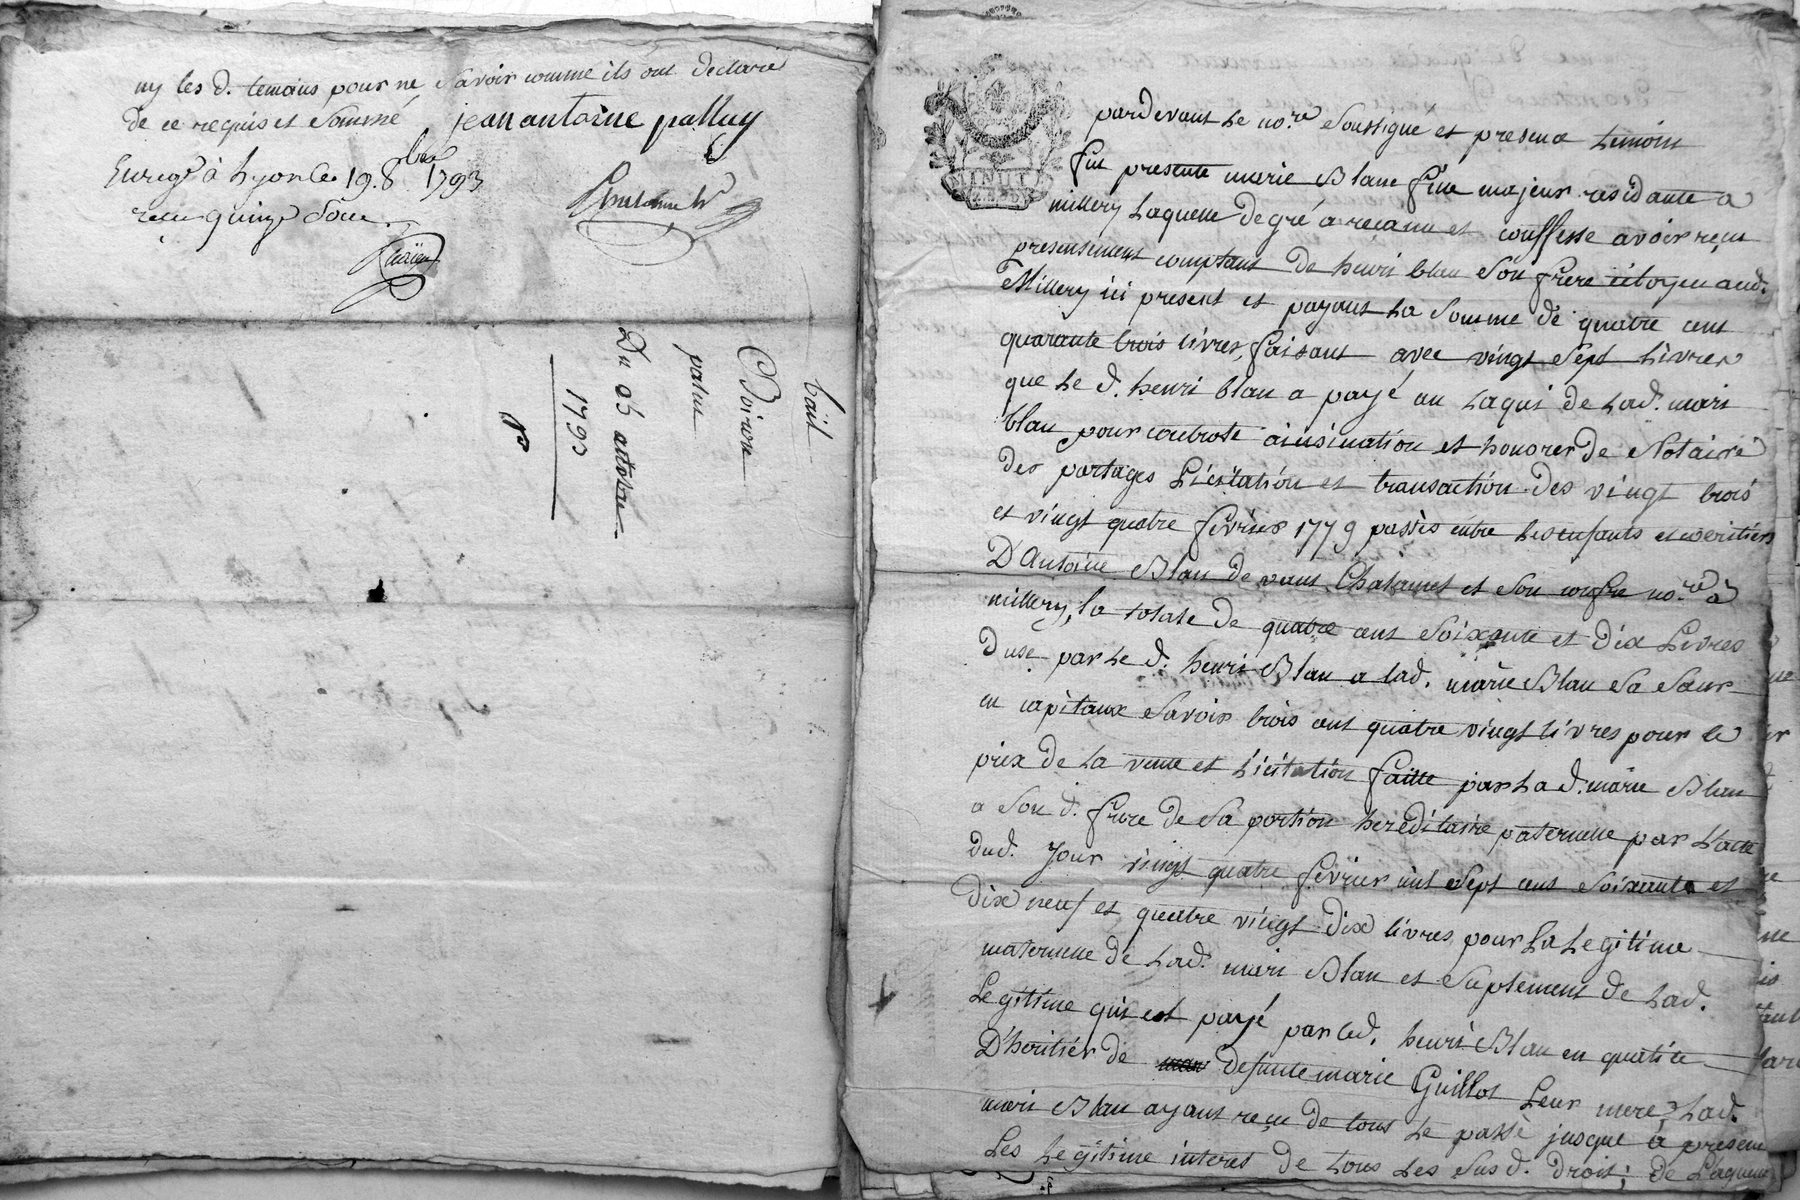 ny les d. temains pour ne Savoir comme ils ont declaré
de ce requis et Sommé jean antoine palluy
Enregé à Lyon le 19. 8bre 1793
reçu quinze Sous
bail
Poiron
palui
Du 05 octobre
1793
pardevant Le nore Soussigné et presence temoins
fut presente marie Blanc fille majeur residante a
millery Laquelle de gré a reçannu et conffesse avoir reçu
presentement comptant de henri blan Son frere citoyen aud.
Millery ici present et payant La Somme de quatre cent
quarante trois livres, faisant avec vingt Sept Livres
que Le d. henri blan a payé au Laquis de Lad. mari
blan pour controle insinuation et honorer de Notaire
des partages Licitation et transaction des vingt trois
et vingt quatre février 1779 passés entre Les enfants et heritiers
D'Antoine Blan devant Chatanet et Son confre nore a
millery, la totale de quatre cent Soixante et Dix Livres
Due par Le d. henri Blan a lad. marie Blan Sa Sœur
en capitaux Savoir trois cent quatre vingt livres pour le
prix de La vente et Licitation faitte par La d. marie Blan
a Son d. frere de Sa portion hereditaire paternelle par L'acte
dud. Jour vingt quatre février mil Sept cent Soixante et
Dix neuf et quatre vingt Dix livres pour La Legitime
maternelle de Lad. mari Blan et Suplement de Lad.
Legitime qui est payé par led. henri Blan en qualité
D'heritier de defunte marie Guillot Leur mere, Lad.
mari Blan ayant reçu de tous Le passé jusque à present
Les Legitime interet de tous Les Sus d. Droit; de Laquelle
MINUT